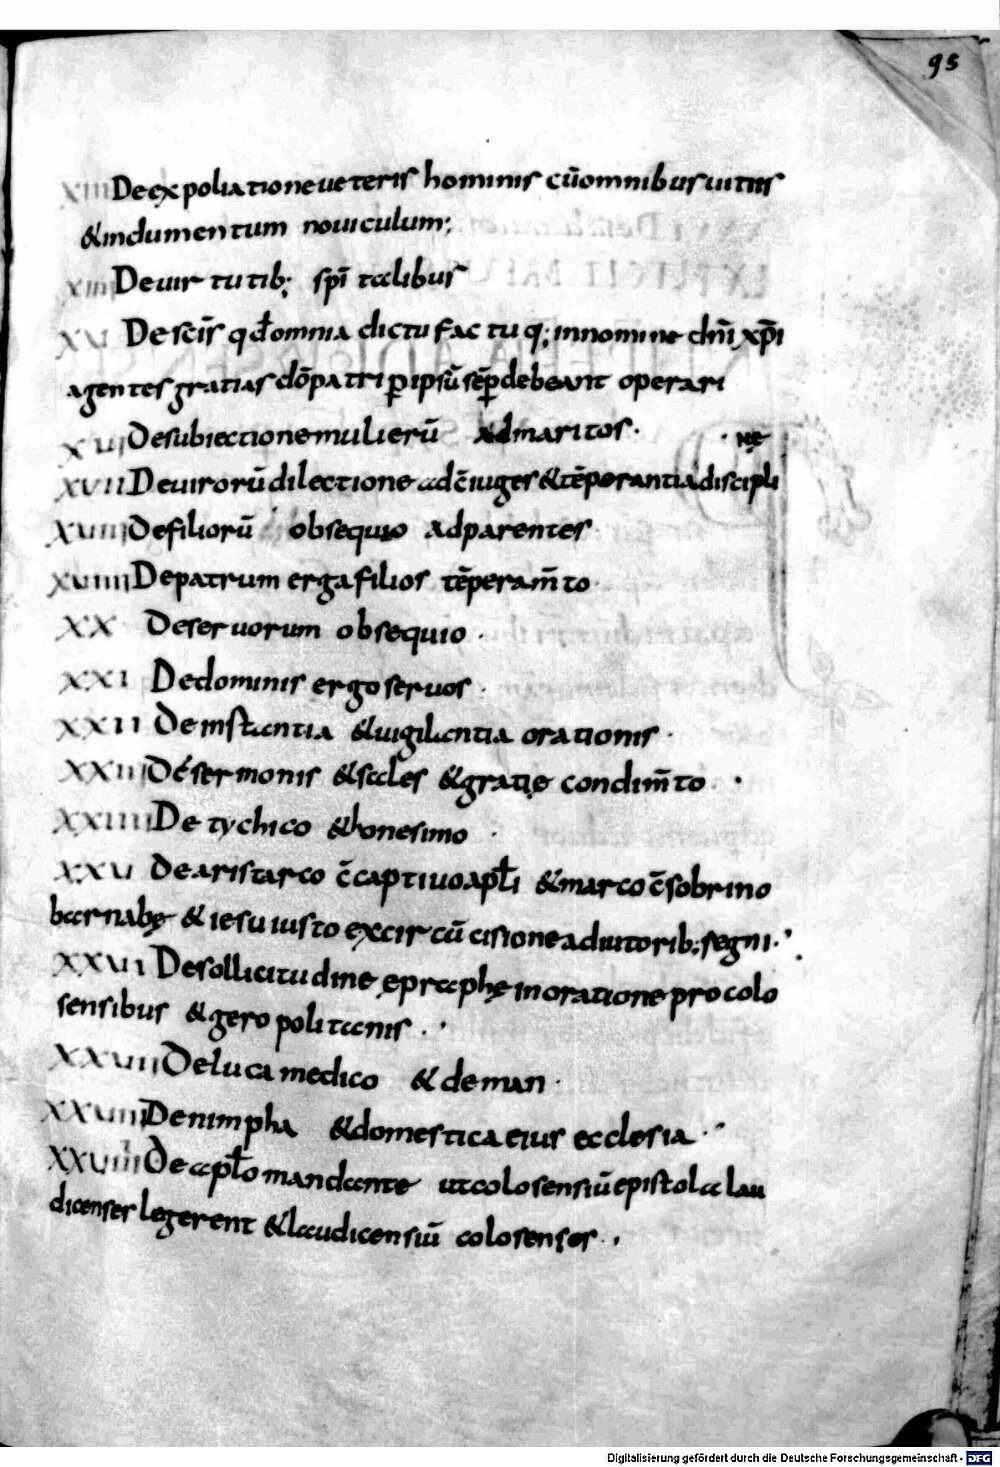 95
XIII De expoliatione ueteris hominis cū omnibus uitiis
& indumentum nouiculum;
XIIII De uirtutib; spī talibus
XV De scīs qđ omnia dictu factu q; in nomine dnī xpī
agentes gratias dō patri p̱ ipsū sēp̱ debeant operari
XVI De subiectione mulierū ad maritos.
nę
XVII De uirorū dilectione ad c̄iuges & tēperantia discipli
XVIII De filiorū obsequio ad parentes
XVIIII De patrum erga filios tēperam̄to
XX De seruorum obsequio.
XXI De dominis ergo seruos.
XXII De instantia & uigilantia orationis.
XXIII De sermonis & sales & gratię condim̄to.
XXIIII De tychico & honesimo.
XXV De aristarco c̄captiuo apłi & marco c̄sobrino
barnabę & iesu iusto ex circūcisione adiutorib; segni.
XXVI De sollicitudine epraphę in oratione pro colo
sensibus & geropolitanis.
XXVII De luca medico & deman.
XXVIII De nimpha & domestica eius ecclesia.
XXVIIII De apło mandante ut colosensiū epistola lau
dicenses legerent & laudicensiū colosenses.
Digitalisierung gefördert durch die Deutsche Forschungsgemeinschaft - DFG